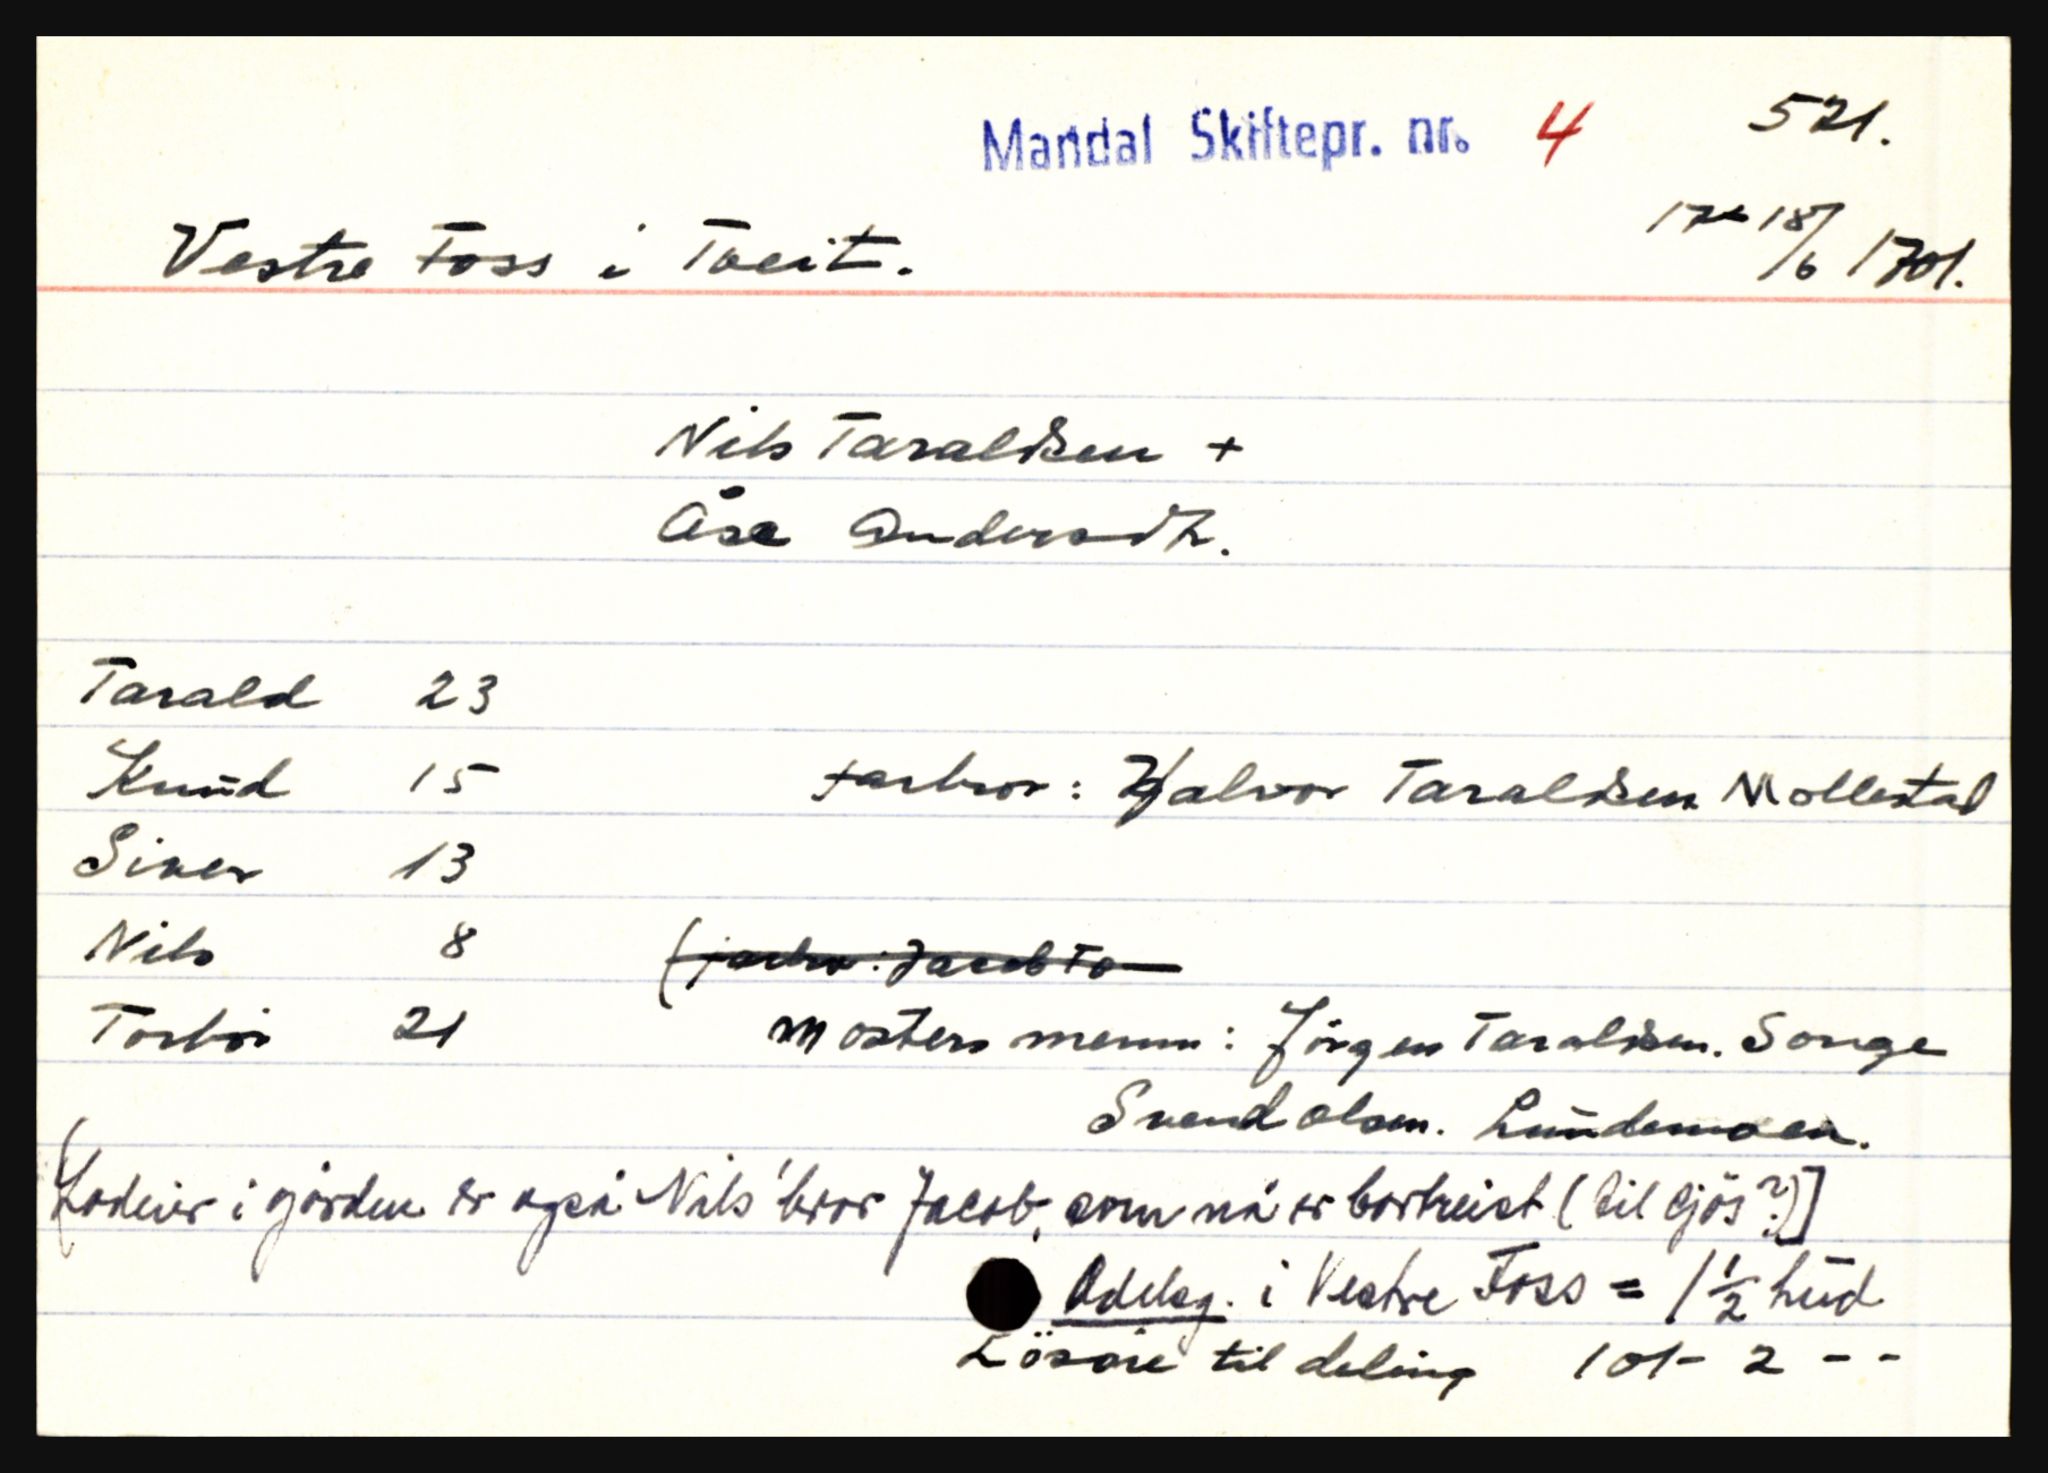 Mandal Skiftepr. nr. 4 521.
18/6 1701.
Vestre Foss i Tveit.
Nils Taraldsen +
Åse Andersdtr.
Tarald 23
Knud 15 farbror: Halvor Taraldsen Mollestad
Siver 13
Nils 8 (farbror: Jacob Ta
Torbor 21 Mosters menn: Jörgen Taraldsen. Songe
Svend Olsen. Lundemoen.
[Lodeier i gården er også Nils' bror Jacob, som nå er bortreist (til sjös?)]
Odelsg. i Vestre Foss = 1 1/2 hud
Lösöre til deling 101 - 2 - -